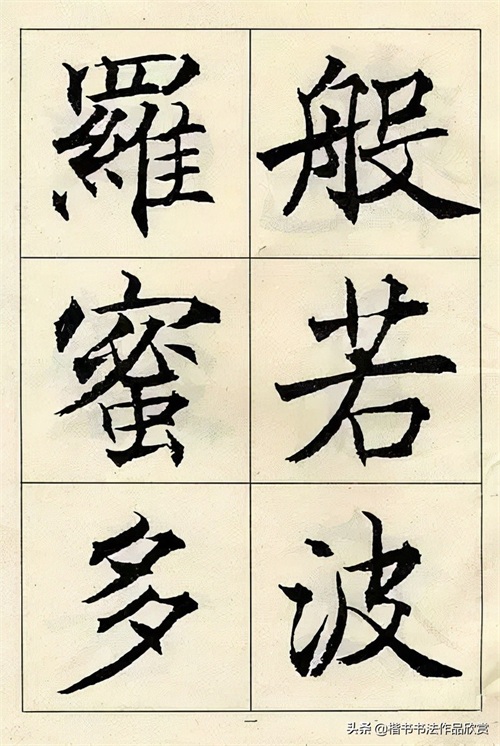 般若波
羅蜜多
一
头条@楷书书法作品欣赏